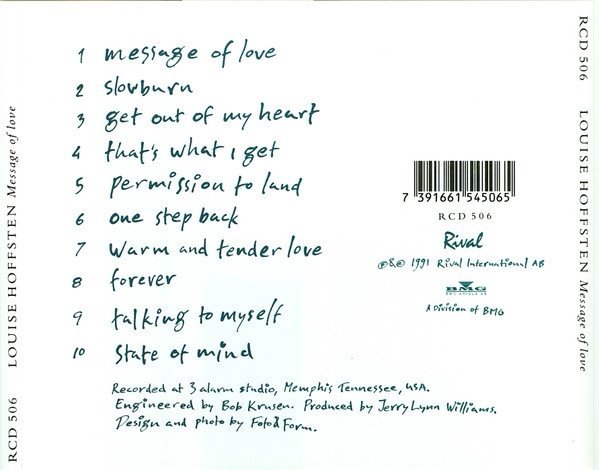 RCD 506 LOUISE HOFFSTEN Message of love
1 message of love
2 slowburn
3 get out of my heart
4 that's what i get
5 permission to land
6 one step back
7 warm and tender love
8 forever
9 talking to myself
10 state of mind
Recorded at 3 alarm studio, Memphis Tennessee, USA.
Engineered by Bob Krusen. Produced by Jerry Lynn Williams.
Design and photo by Foto & Form.
7 391661 545065
RCD 506
Rival
℗&© 1991 Rival International AB
BMG
A Division of BMG
RCD 506 LOUISE HOFFSTEN Message of love